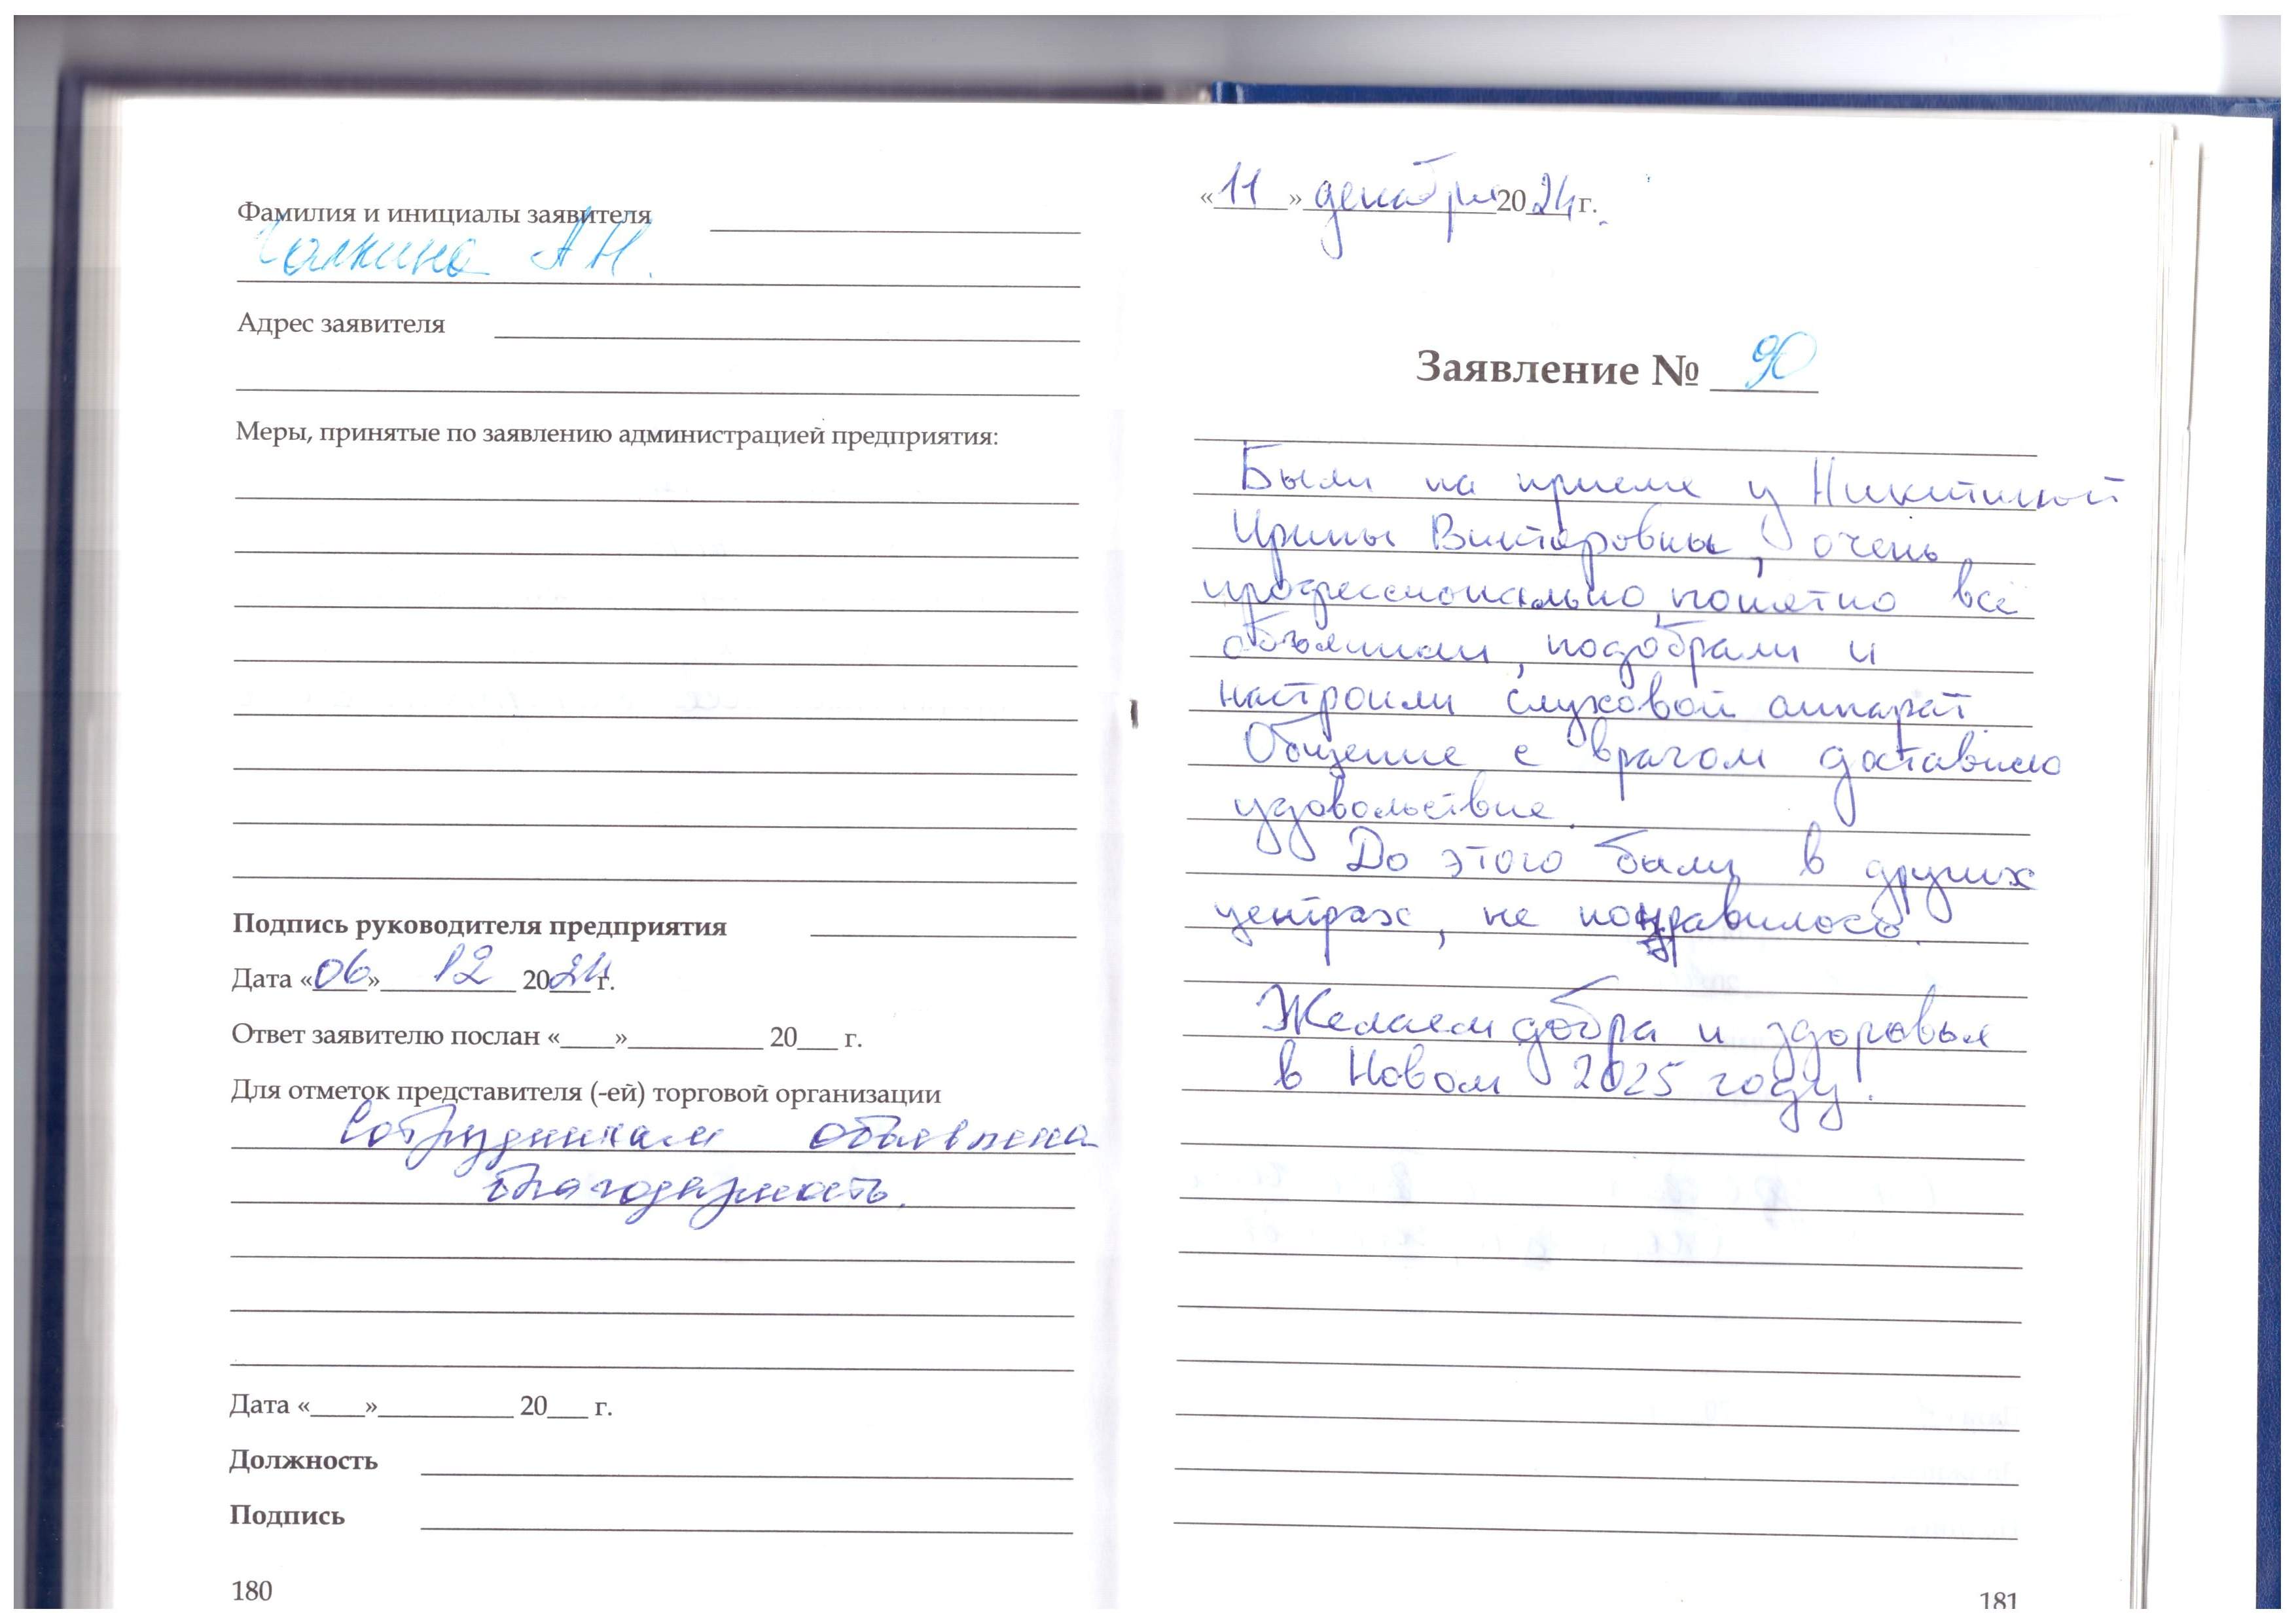 Фамилия и инициалы заявителя
Галкина А Н.
Адрес заявителя
Меры, принятые по заявлению администрацией предприятия:
Подпись руководителя предприятия
Дата «06» 12 2024 г.
Ответ заявителю послан «____»__________ 20___ г.
Для отметок представителя (-ей) торговой организации
Сотрудникам объявлена
благодарность.
Дата «____»__________ 20___ г.
Должность
Подпись
180
«11» декабря 2024 г.
Заявление № 90
Были на приеме у Никитиной
Ирины Викторовны, очень
профессионально, понятно всё
объяснили, подобрали и
настроили слуховой аппарат
Общение с врачом доставило
удовольствие.
До этого были в других
центрах, не понравилось.
Желаем добра и здоровья
в Новом 2025 году.
181